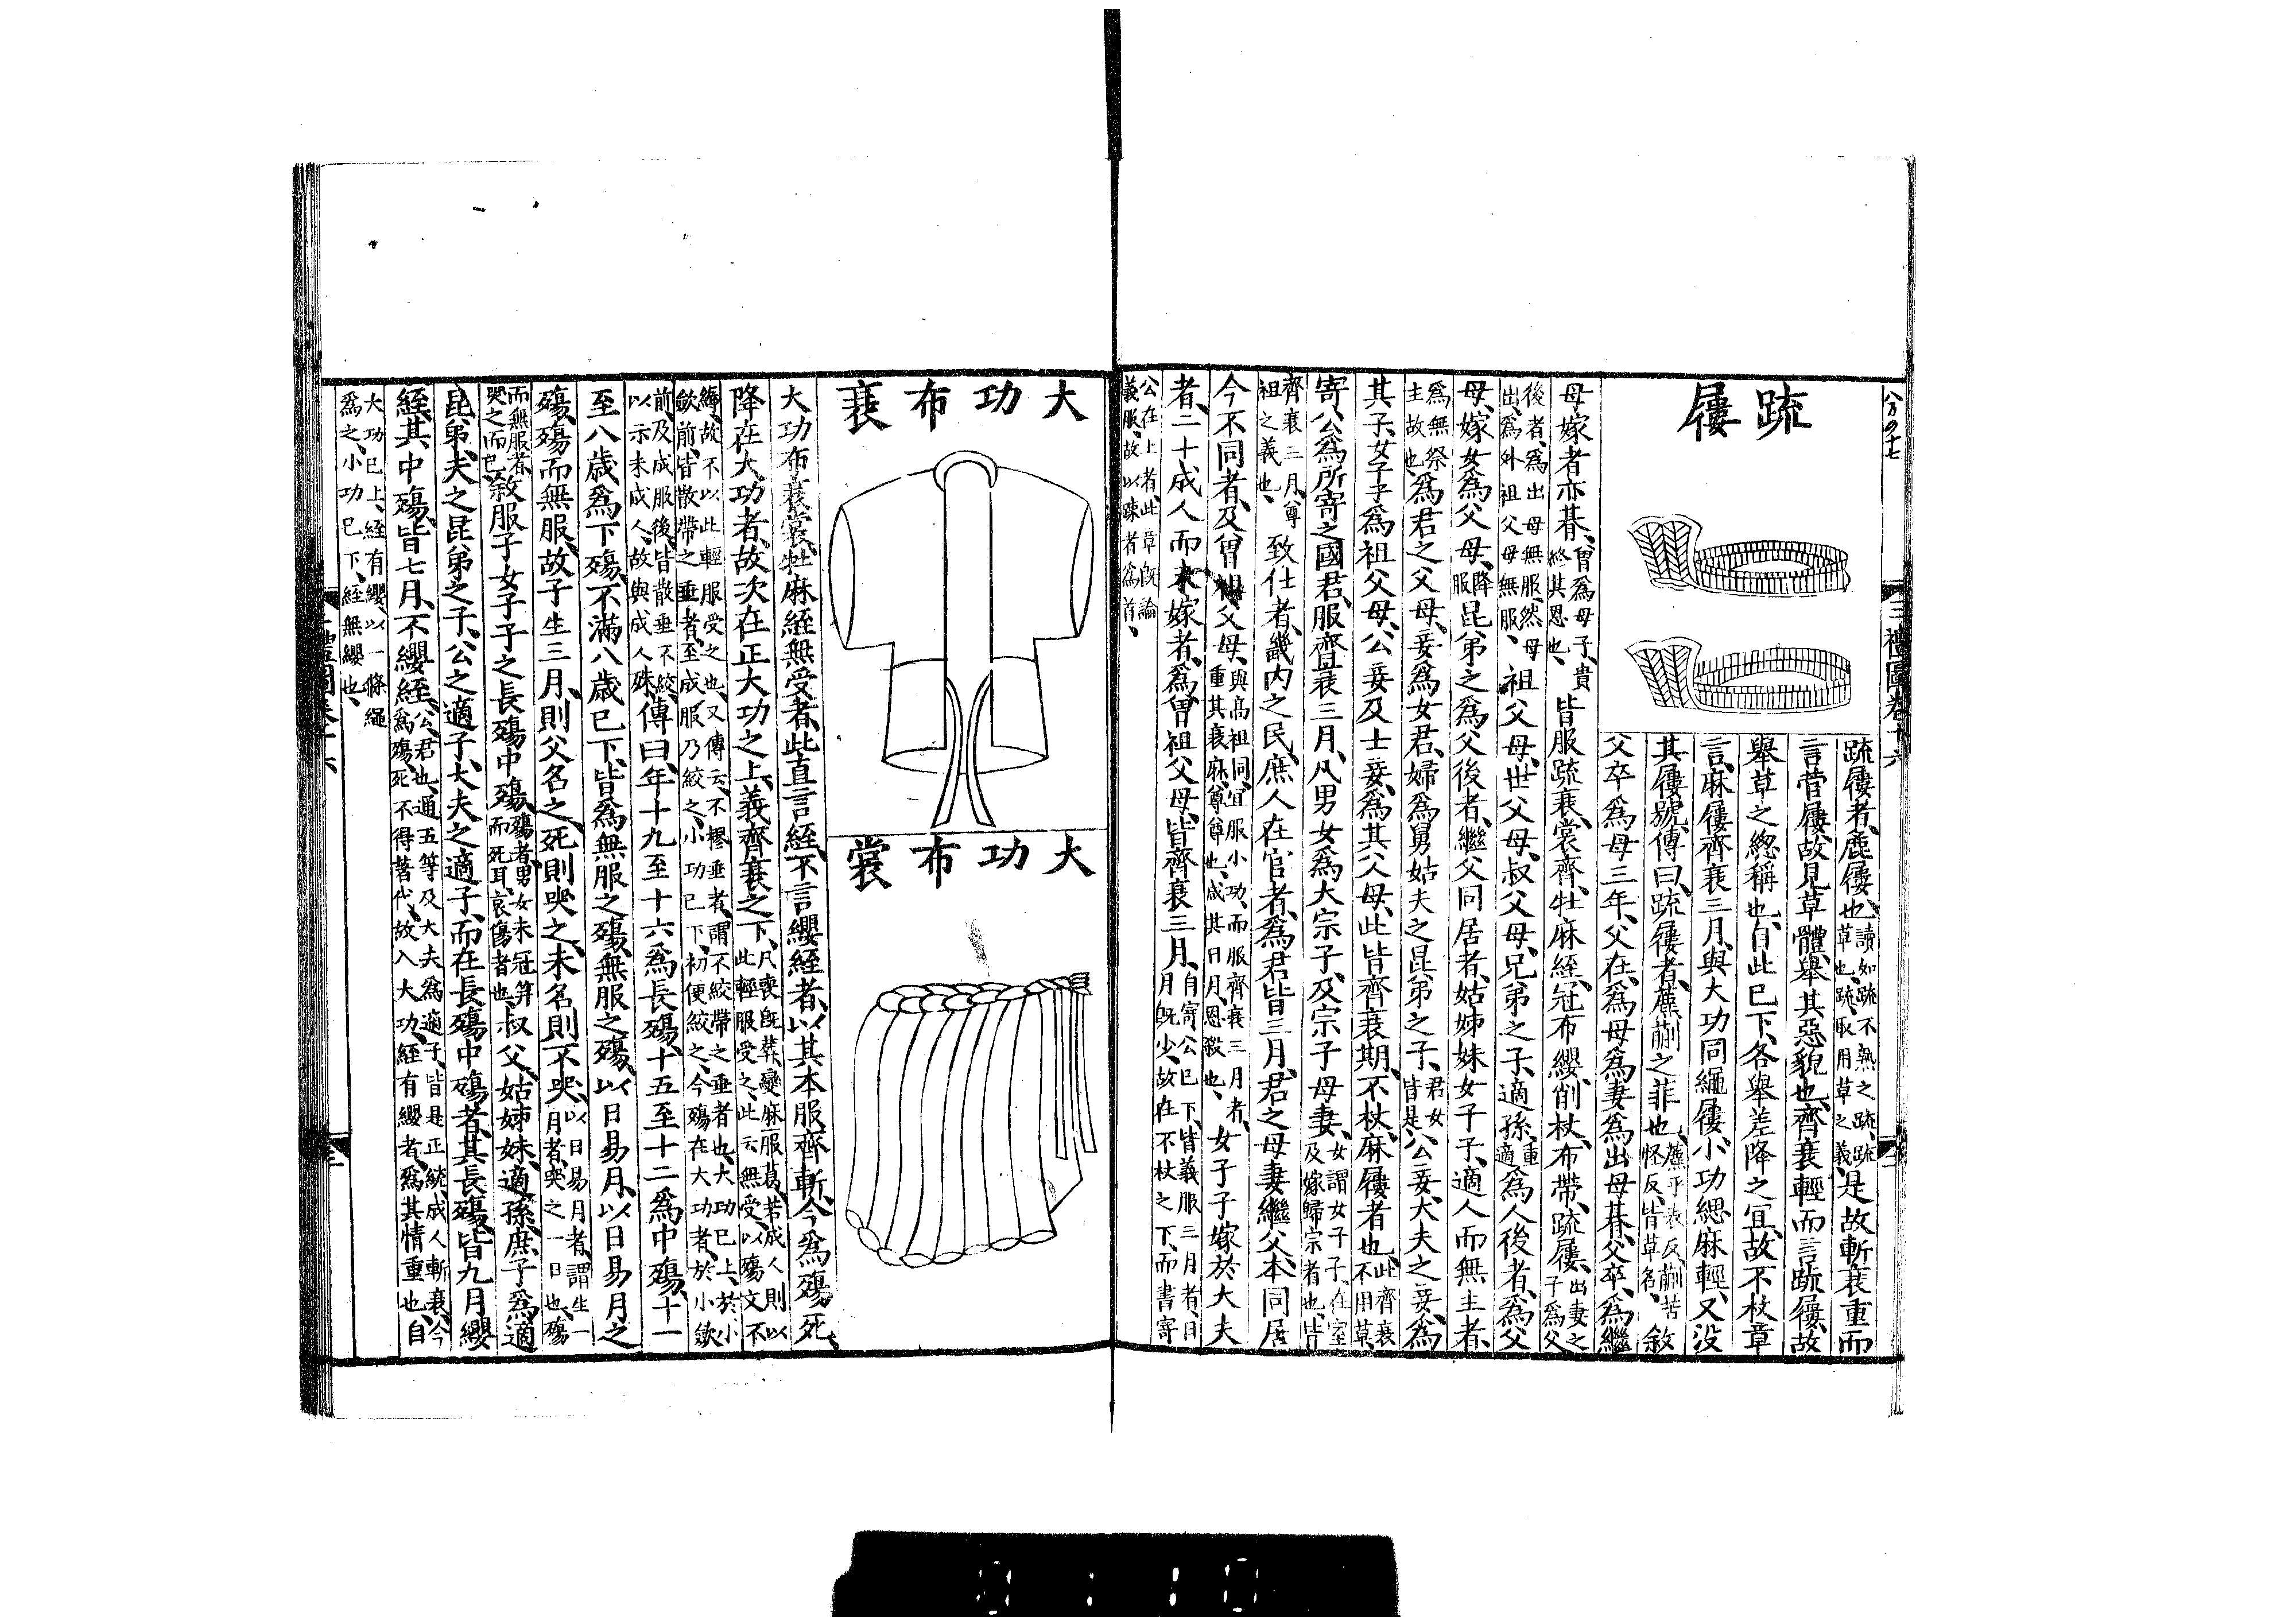 八万の十七
三禮圖卷十六
二
疏屨
疏屨者、麤屨也、讀如疏不熟之疏、疏
草也、疏、取用草之義、是故斬衰重而
言菅屨、故見草體、舉其惡貌也、齊衰輕而言疏屨、故
舉草之緫稱也、自此已下、各舉差降之宜、故不杖章
言、麻屨齊衰三月、與大功同繩屨、小功緦麻輕、又沒
其屨號、傳曰、疏屨者、藨蒯之菲也、藨平表反、蒯苦
怪反、皆草名、敘
父卒爲母三年、父在、爲母爲妻爲出母朞、父卒、爲繼
母嫁者亦朞、曾爲母子、貴
終其恩也、皆服疏衰、裳齊、牡麻絰、冠布纓、削杖、布帶、疏屨、出妻之
子爲父
後者、爲出母無服、然母
出、爲外祖父母無服、祖父母、世父母、叔父母、兄弟之子、適孫、重
適爲人後者、爲父
母、嫁女爲父母、降
服昆弟之爲父後者、繼父同居者、姑姊妹女子子、適人而無主者、
爲無祭
主故也、爲君之父母、妾爲女君、婦爲舅姑夫之昆弟之子、君女
皆是、公妾、大夫之妾、爲
其子、女子子爲祖父母、公妾及士妾、爲其父母、此皆齊衰期、不杖、麻屨者也、此齊衰
不用草、
寄公爲所寄之國君、服齊衰三月、凡男女爲大宗子、及宗子母妻、女謂女子子、在室
及嫁歸宗者也、皆
齊衰三月、尊
祖之義也、致仕者、畿内之民、庶人在官者、爲君皆三月、君之母妻繼父、本同居
今不同者、及曾祖父母、與高祖同、宜服小功、而服齊衰三月者、
重其衰麻、尊尊也、減其日月、恩殺也、女子子嫁於大夫
者、二十成人而未嫁者、爲曾祖父母、皆齊衰三月、自寄公已下、皆義服三月者、日
月既少、故在不杖之下、而書寄
公在上者、此章既論
義服、故以疎者爲首、
大功布衰
大功布裳
大功布衰裳、牡麻絰無受者、此直言絰、不言纓絰者、以其本服齊斬、今爲殤死、
降在大功者、故次在正大功之上、義齊衰之下、凡喪既葬、變麻服葛、若成人則以
此輕服受之、此云無受、以殤文不
縟、故不以此輕服受之也、又傳云、不樛垂者、謂不絞帶之垂者也、大功已上、於小
斂前、皆散帶之垂者、至成服乃絞之、小功已下、初便絞之、今殤在大功者、於小斂
前、及成服後、皆散垂不絞、
以示未成人、故與成人殊、傳曰、年十九至十六爲長殤、十五至十二爲中殤、十一
至八歲、爲下殤、不滿八歲已下、皆爲無服之殤、無服之殤、以日易月、以日易月之
殤、殤而無服、故子生三月、則父名之、死則哭之、未名則不哭、以日易月者、謂生一
月者、哭之一日也、殤
而無服者、
哭之而已、敘服子女子子之長殤中殤、殤者、男女未冠笄
而死耳、哀傷者也、叔父、姑姊妹、適孫、庶子爲適
昆弟、夫之昆弟之子、公之適子、大夫之適子、而在長殤中殤者、其長殤皆九月、纓
絰、其中殤皆七月、不纓絰、公、君也、通五等及大夫爲適子、皆是正統、成人斬衰、今
爲殤、死不得著代、故入大功、絰有纓者、爲其情重也、自
大功已上、絰有纓、以一條繩
爲之、小功已下、絰無纓也、
0110